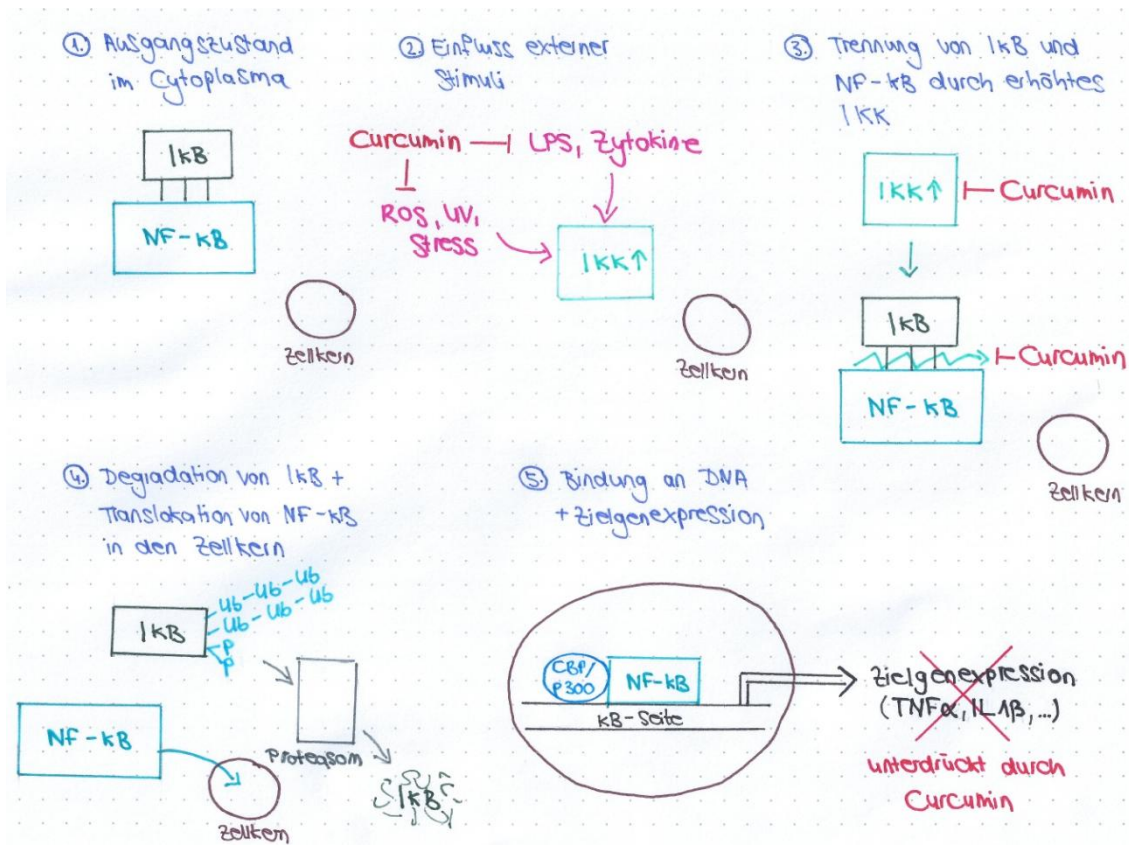 1. Ausgangszustand
im Cytoplasma
IκB
NF-κB
Zellkern
2. Einfluss externer
Stimuli
Curcumin ⊣ LPS, Zytokine
ROS, UV,
Stress
IKK↑
Zellkern
3. Trennung von IκB und
NF-κB durch erhöhtes
IKK
IKK↑ ⊢ Curcumin
IκB
⊢ Curcumin
NF-κB
Zellkern
4. Degradation von IκB +
Translokation von NF-κB
in den Zellkern
Ub-Ub-Ub
Ub-Ub-Ub
IκB
P
P
Proteasom
NF-κB
IκB
Zellkern
5. Bindung an DNA
+ Zielgenexpression
CBP/
P300
NF-κB
κB-Seite
Zielgenexpression
(TNFα, IL1β, ...)
unterdrückt durch
Curcumin